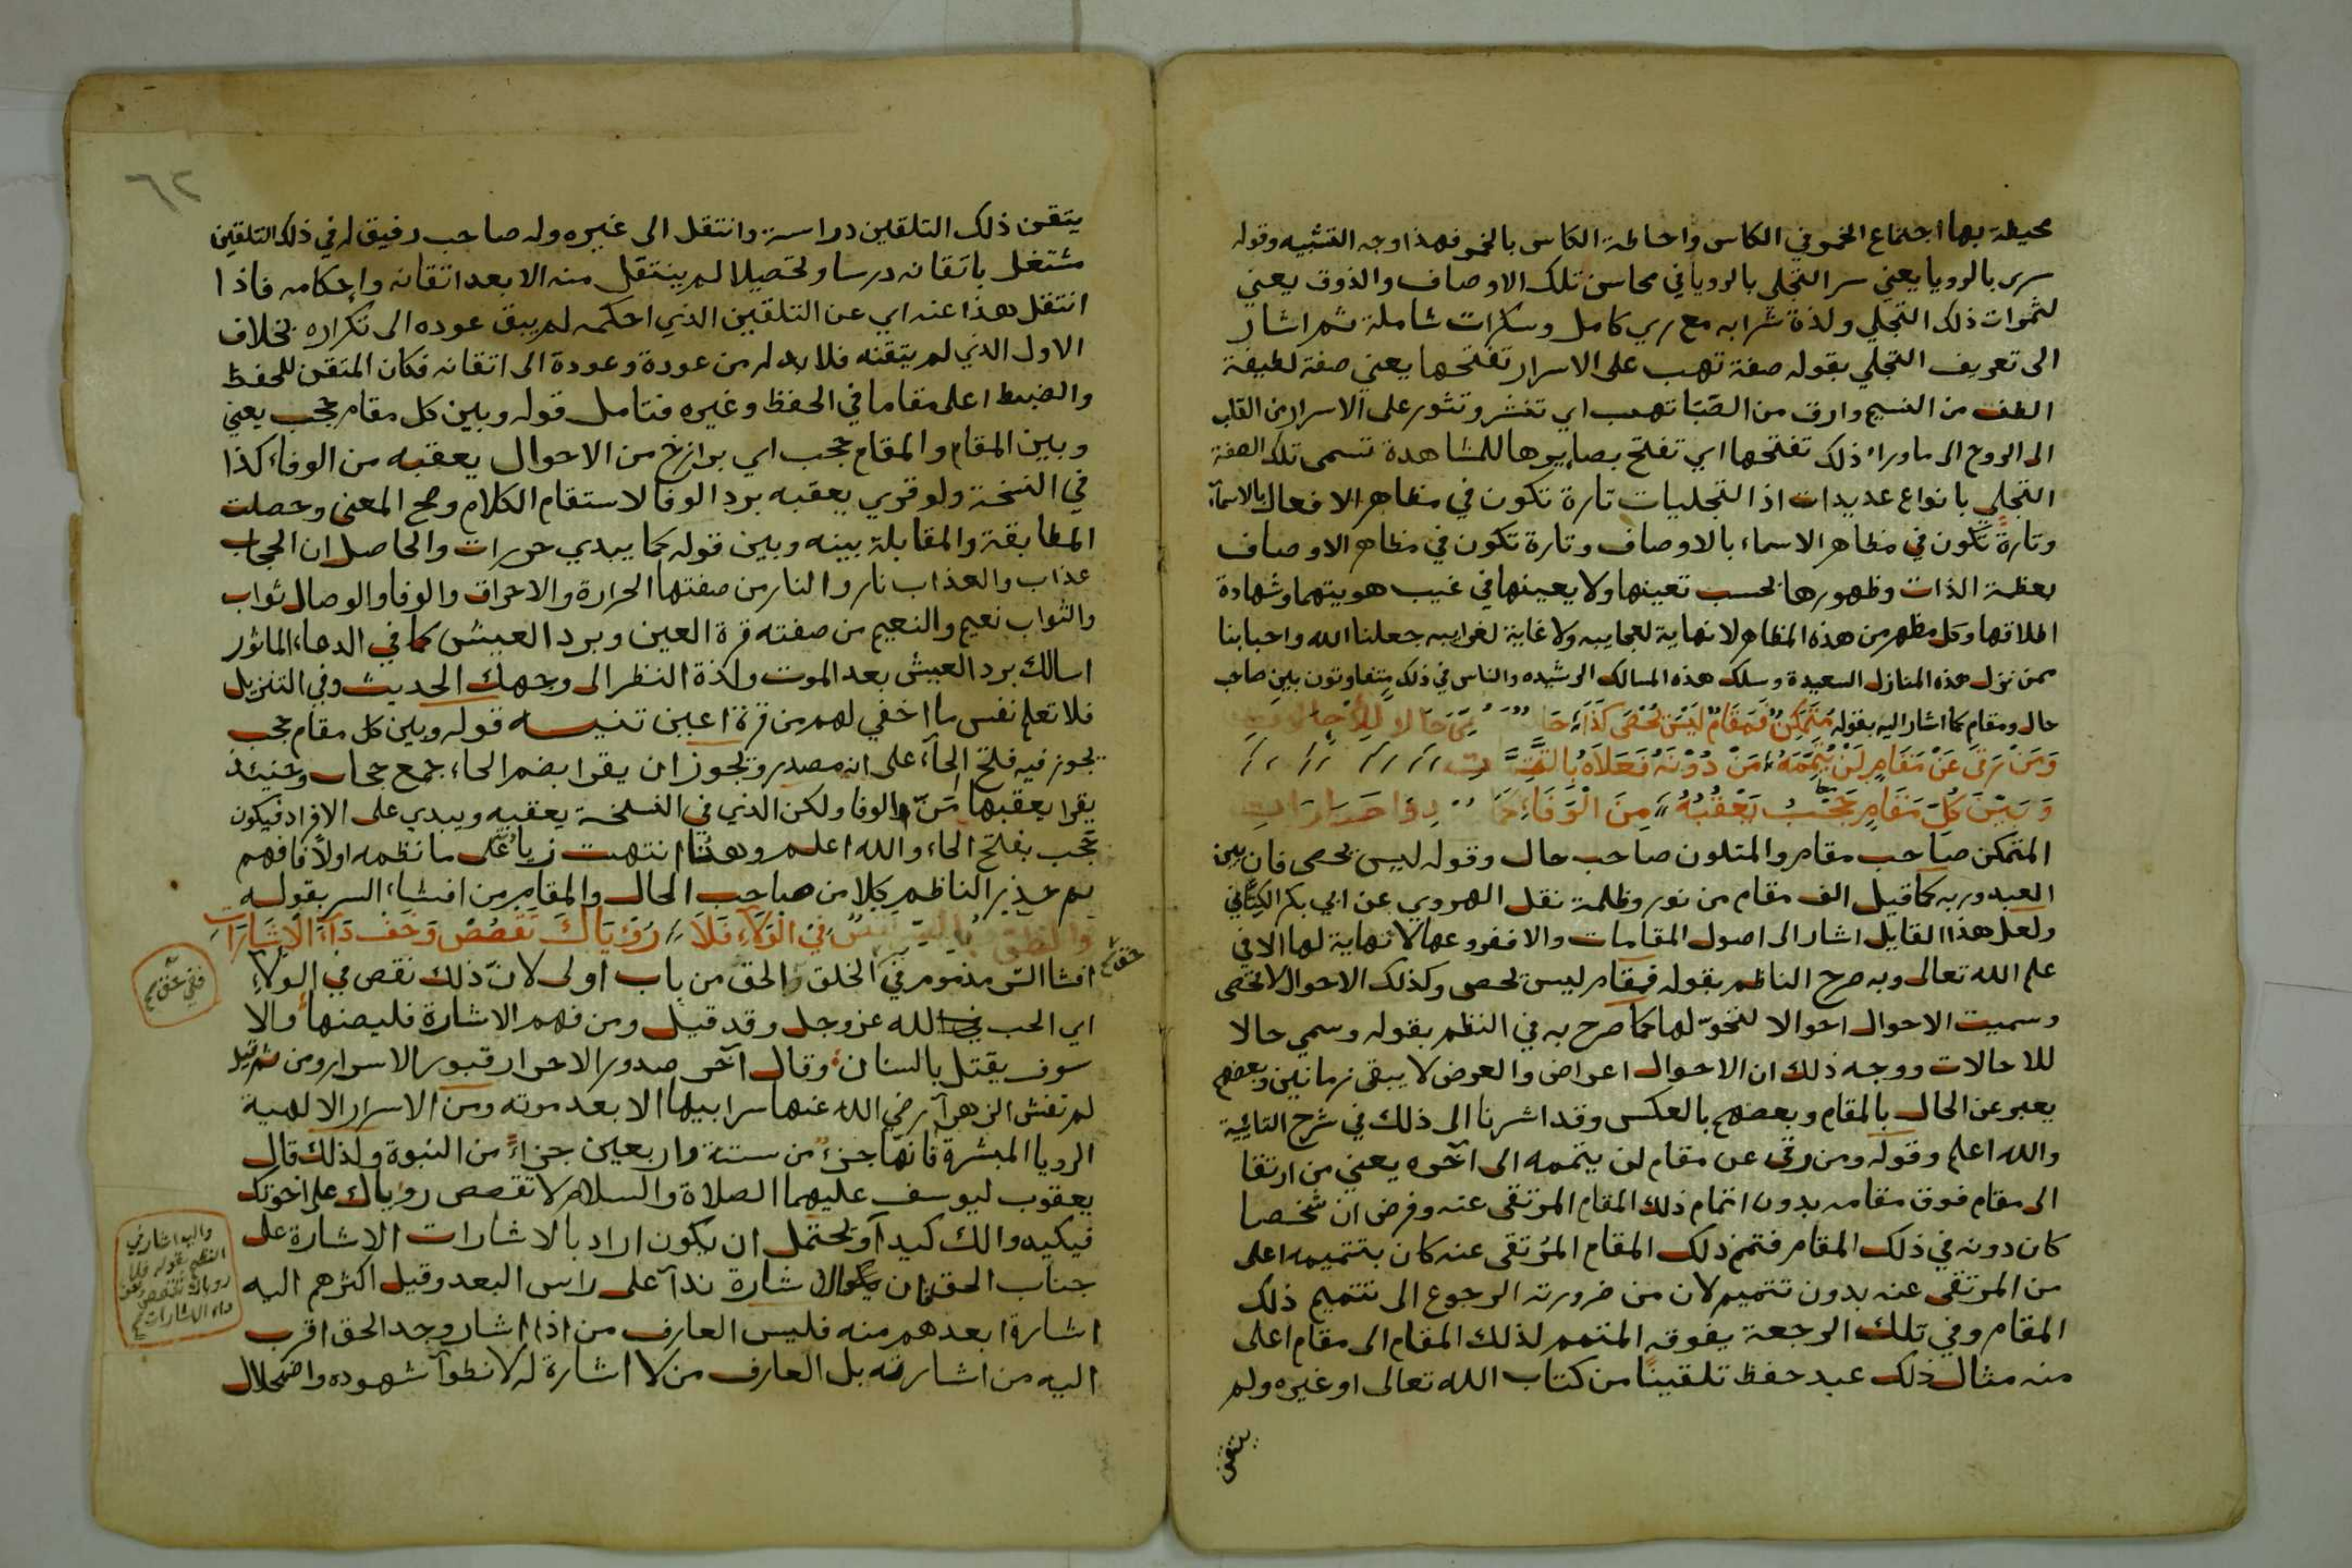 محيطة بها اجتماع الخمر في الكاس واحاطة الكاس بالخمر فهذا وجه التشبيه وقوله
سرى بالرويا يعني سر التجلي بالرويا في محاسن تلك الاوصاف والذوق يعني
لثمرات ذلك التجلي ولذة شرابه مع ري كامل وسكرات شاملة ثم اشار
الى تعريف التجلي بقوله صفة تهب على الاسرار تفتحها يعني صفة لطيفة
الطف من النسيم وارق من الصَبَا تهب اي تنشر وتثور على الاسرار من القلب
الى الروح الى ما وراء ذلك تفتحها اي تفتح بصايرها للمشاهدة تسمى تلك الصفة
التجلي بانواع عديدات اذ التجليات تارة تكون في مظاهر الافعال بالاسماء
وتارة تكون في مظاهر الاسماء بالاوصاف وتارة تكون في مظاهر الاوصاف
بعظمة الذات وظهورها بحسب تعينها ولا يعينها في غيب هويتهما وشهادة
اطلاقها وكل مظهر من هذه المظاهر لا نهاية لعجايبه ولا غاية لغرايبه جعلنا الله واحبابنا
ممن نزل هذه المنازل السعيدة وسلك هذه المسالك الرشيده والناس في ذلك متفاوتون بين صاحب
حال ومقام كما اشار اليه بقوله مُتَمَكِّنٌ فَمَقَامٌ لَيْسَ يُحْصَى كَذَا حَالا لِلْأِحَالَاتِ
وَمَنْ رَقَى عَنْ مَقَامٍ لَنْ يُتَمِّمَهُ مَنْ دُوْنَهُ فَعَلَاهُ
وَبَيْنَ كُلِّ مَقَامٍ حَجْبُ يَعْقُبُهُ مِنَ الْوَفَاءِ حَرَارَاتِ
المتمكن صاحب مقام والمتلون صاحب حال وقوله ليس يحصى فان بين
العبد وربه كما قيل الف مقام من نور وظلمة نقل الهروي عن ابي بكر الكِتَّاني
ولعل هذا القايل اشار الى اصول المقامات والا ففروعها لا نهاية لها الا في
علم الله تعالى وبه صرح الناظم بقوله فمقام ليس يحصى وكذلك الاحوال لا تحصى
وسميت الاحوال احوالا للتحوّلها كما صرح به في النظم بقوله وسمي حالا
للاحالات ووجه ذلك ان الاحوال اعراض والعرض لا يبقى زمانين وبعضهم
يعبر عن الحال بالمقام وبعضهم بالعكس وقد اشرنا الى ذلك في شرح التائية
والله اعلم وقوله ومن رقى عن مقام لن يتممه الى آخره يعني من ارتقا
الى مقام فوق مقامه بدون اتمام ذلك المقام المرتقى عنه وفرض ان شخصا
كان دونه في ذلك المقام فتمم ذلك المقام المرتقى عنه كان بتتميمه اعلى
من المرتقى عنه بدون تتميم لان من ضرورته الرجوع الى تتميم ذلك
المقام وفي تلك الرجعة يفوقه المتمم لذلك المقام الى مقام اعلى
منه مثال ذلك عبد حفظ تلقينًا من كتاب الله تعالى او غيره ولم
يتقن
٦٢
يتقن ذلك التلقين دراسة وانتقل الى غيره وله صاحب رفيق له في ذلك التلقين
مشتغل باتقانه درسا وتحصيلا لم ينتقل منه الا بعد اتقانه واحكامه فاذا
انتقل هذا عنه اي عن التلقين الذي احكمه لم يبق عوده الى تكراره بخلاف
الاول الذي لم يتقنه فلا بد له من عودة وعودة الى اتقانه فكان المتقن للحفظ
والضبط اعلى مقاما في الحفظ وغيره فتامل قوله وبين كل مقام حجب يعني
وبين المقام والمقام حجب اي برازخ من الاحوال يعقبه من الوفاء كذا
في النسخة ولو قري يعقبه برد الوفا لاستقام الكلام وصح المعنى وحصلت
المطابقة والمقابلة بينه وبين قوله كما يبدي حورات والحاصل ان الحجاب
عذاب والعذاب نار والنار من صفتها الحرارة والاحراق والوفا والوصال ثواب
والثواب نعيم والنعيم من صفته قرة العين وبرد العيش كما في الدعاء الماثور
اسالك برد العيش بعد الموت ولذة النظر الى وجهك الحديث وفي التنزيل
فلا تعلم نفس ما اخفي لهم من قرة اعين تنبيه قوله وبين كل مقام حجب
يجوز فيه فتح الحآء على انه مصدر ويجوز ان يقرا بضم الحاء جمع حجاب وحينئذ
يقرا يعقبها مَنّ الوفا ولكن الذي في النسخة يعقبه ويبدي على الافراد فيكون
حجب بفتح الحاء والله اعلم وهنا انتهت على ما نظمه اولا فافهم
ثم حذر الناظم كلا من صاحب الحال والمقام من افشاء السر بقوله
في الوَلَاءِ فَلَا رُؤيَاكَ تَقصُصْ وَخَف دَآءَ الاِشَارَاتِ
افشا السّر مذموم في حق الخلق والحق من باب اولى لانّ ذلك نقص في الولآء
اي الحب في الله عز وجل وقد قيل ومن فهم الاشارة فليصنها والا
سوف يقتل بالسنان وقال آخر صدور الاحرار قبور الاسرار ومن ثم قيل
لم تفش الزهرآ رضي الله عنها سر ابيها الا بعد موته ومن الاسرار الالهية
الرويا المبشرة فانها جزء من ستة واربعين جزاءً من النبوة ولذلك قال
يعقوب ليوسف عليهما الصلاة والسلام لا تقصص روياك على اخوتك
فيكيدوا لك كيداً ويحتمل ان يكون اراد بالاشارات الاشارة على
جناب الحق فان شارة ندآ على راس البعد وقيل اكثرهم اليه
اشارة ابعدهم منه فليس العارف من اذا اشار وجد الحق اقرب
اليه من اشارته بل العارف من لا اشارة له لانطوآ شهوده واضمحلال
واليه اشار في
النظم بقوله فلا
روياك تقصص وخف
داء الاشارات